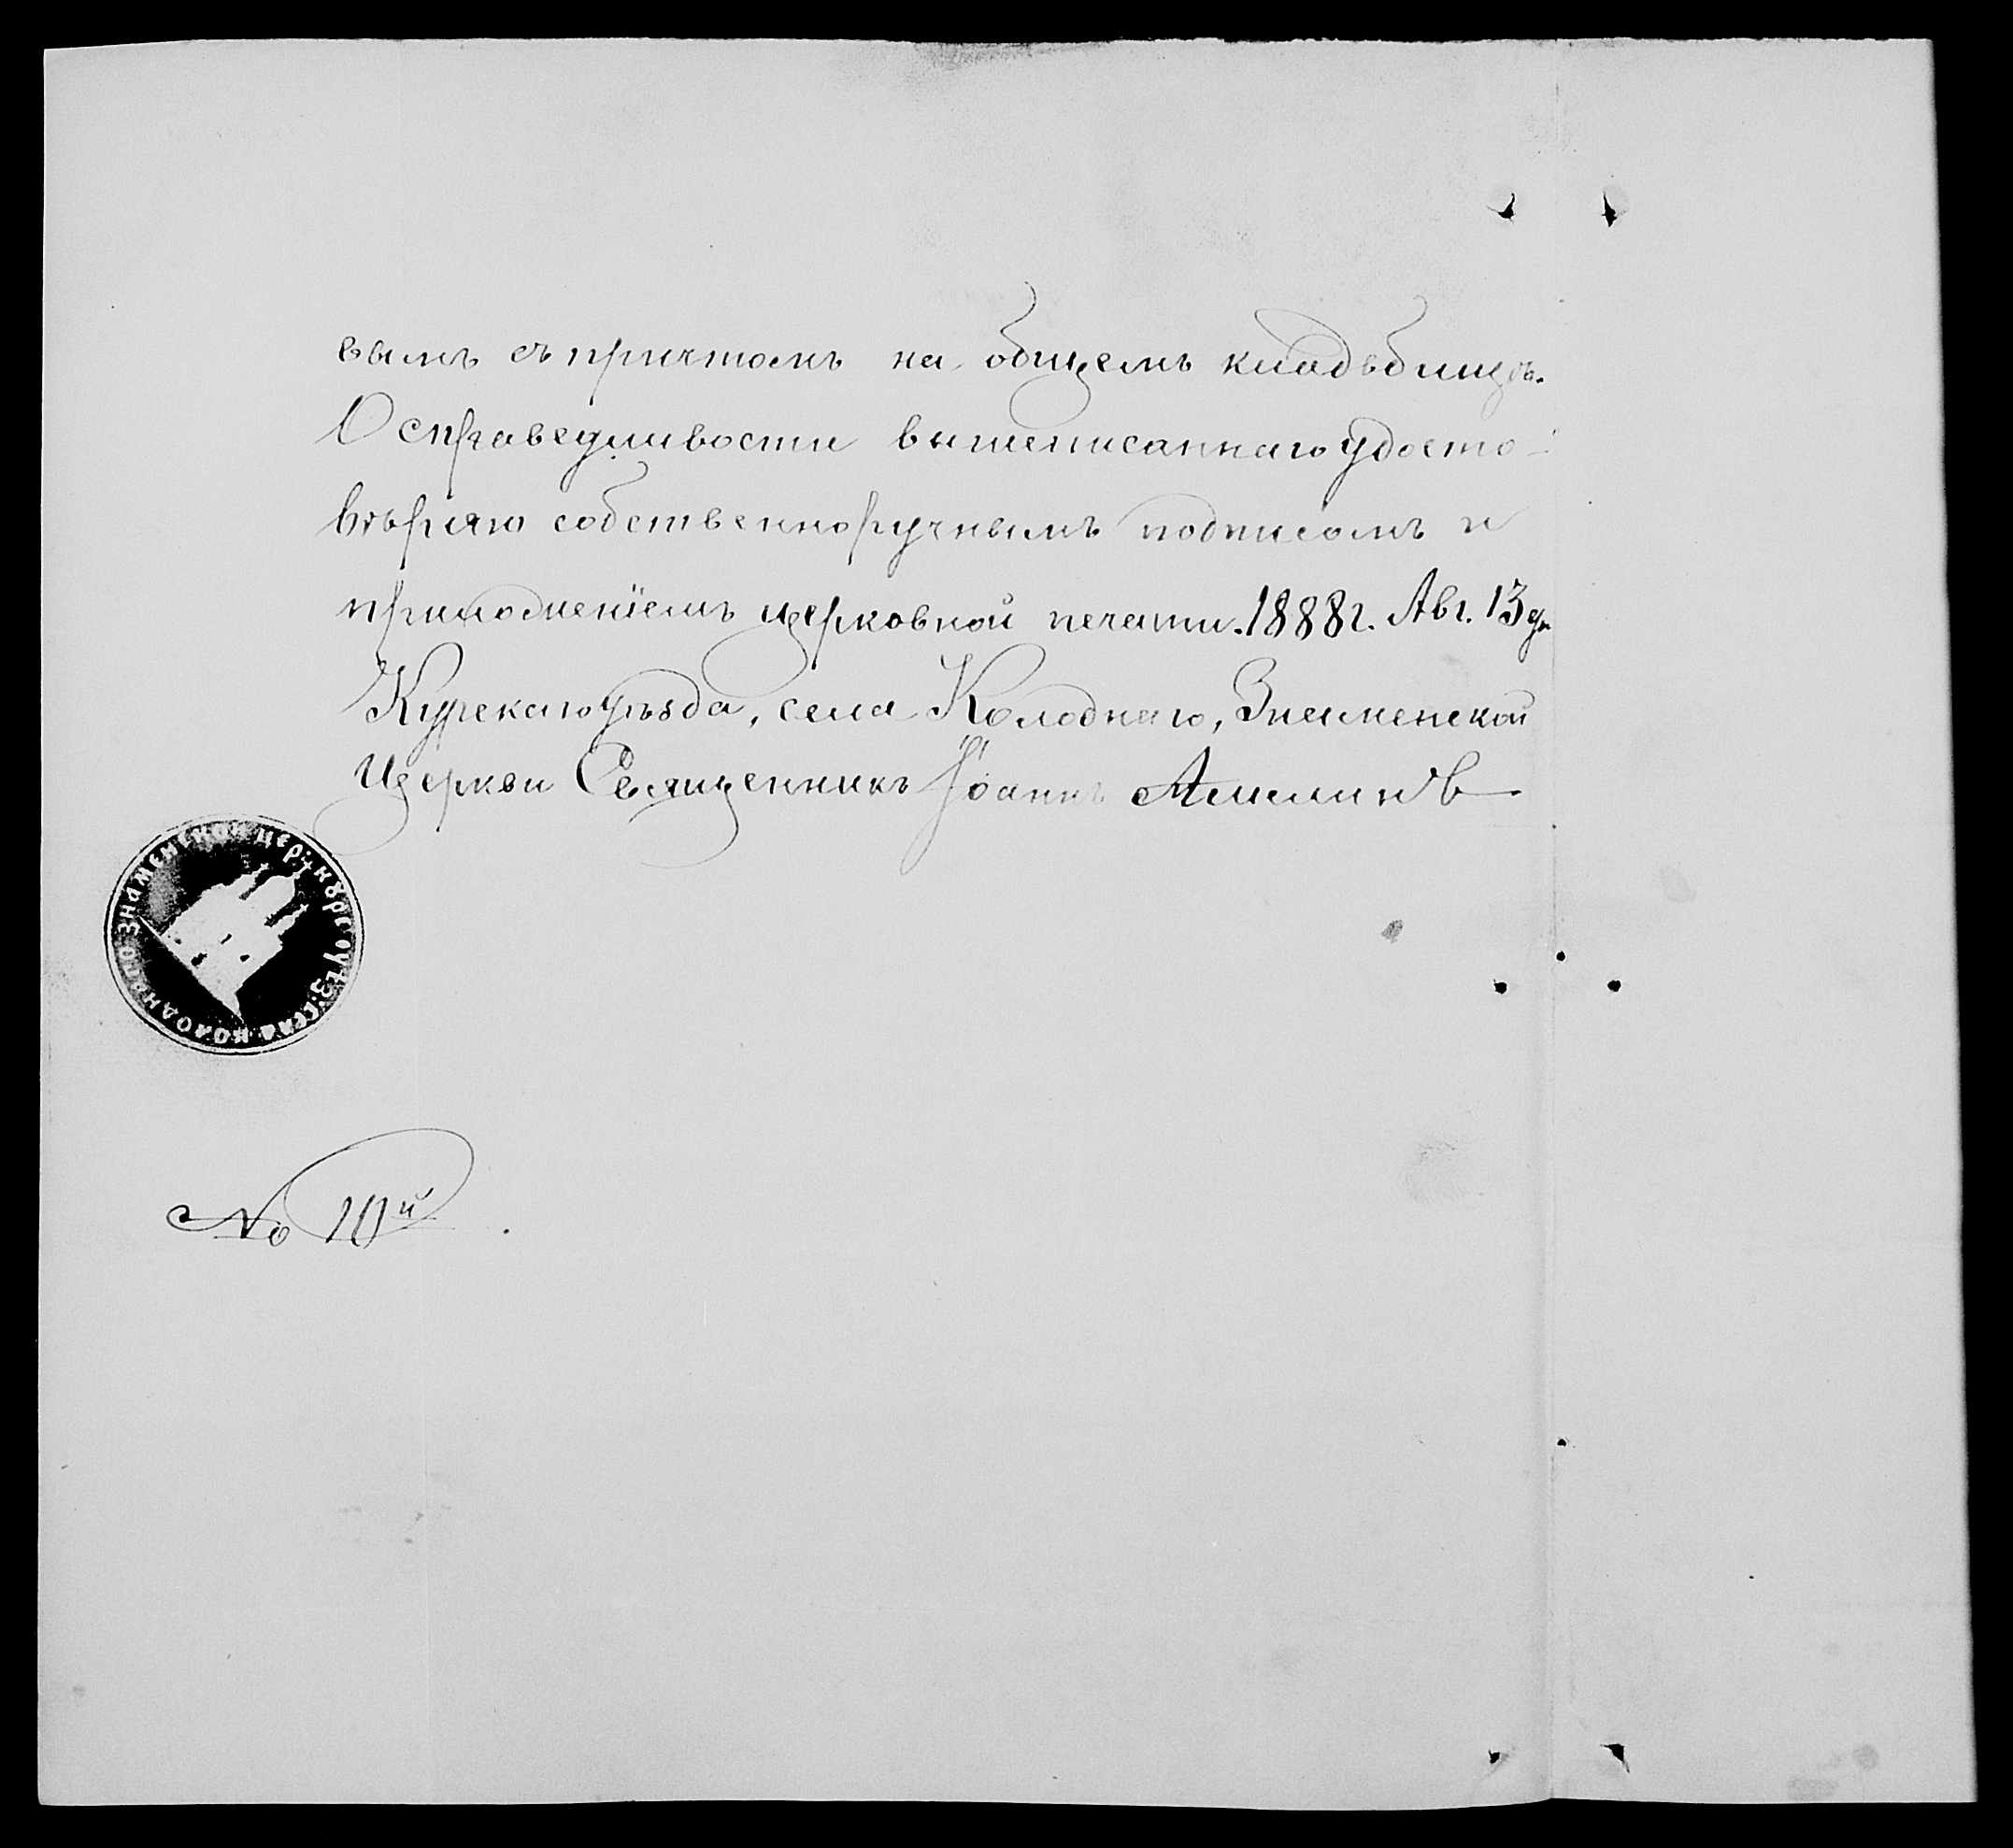 вымъ съ причтомъ на общемъ кладьбищѣ.
О справедливости вышеписаннаго удосто-
вѣряю собственноручнымъ подписомъ и
приложеніемъ церковной печати. 1888 г. Авг. 13 дн
Курскаго уѣзда, села Колоднаго, Знаменской
Церкви Священникъ Іоаннъ Амелинъ
ЗНАМЕНСКОЙ ЦЕР: КУРС ОУѢЗ: СЕЛА КОЛОДНАГО
No 10й